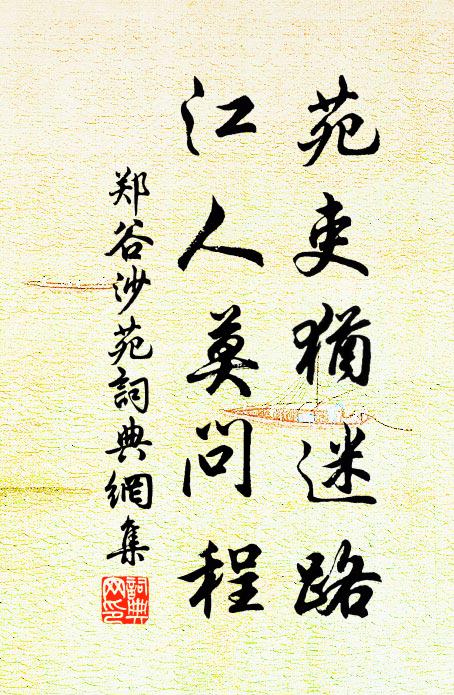 苑吏犹迷路
江人莫问程
郑谷沙苑詞典網集
詞典